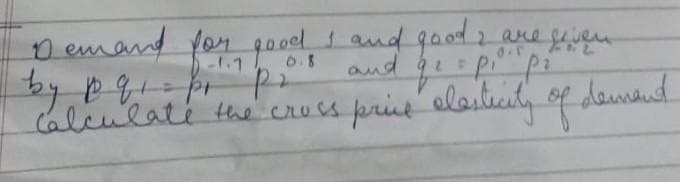 Demand for good 1 and good 2 are given
by q1 = p1^-1.7 p2^0.8 and q2 = p1^0.5 p2^-0.2
Calculate the cross price elasticity of demand